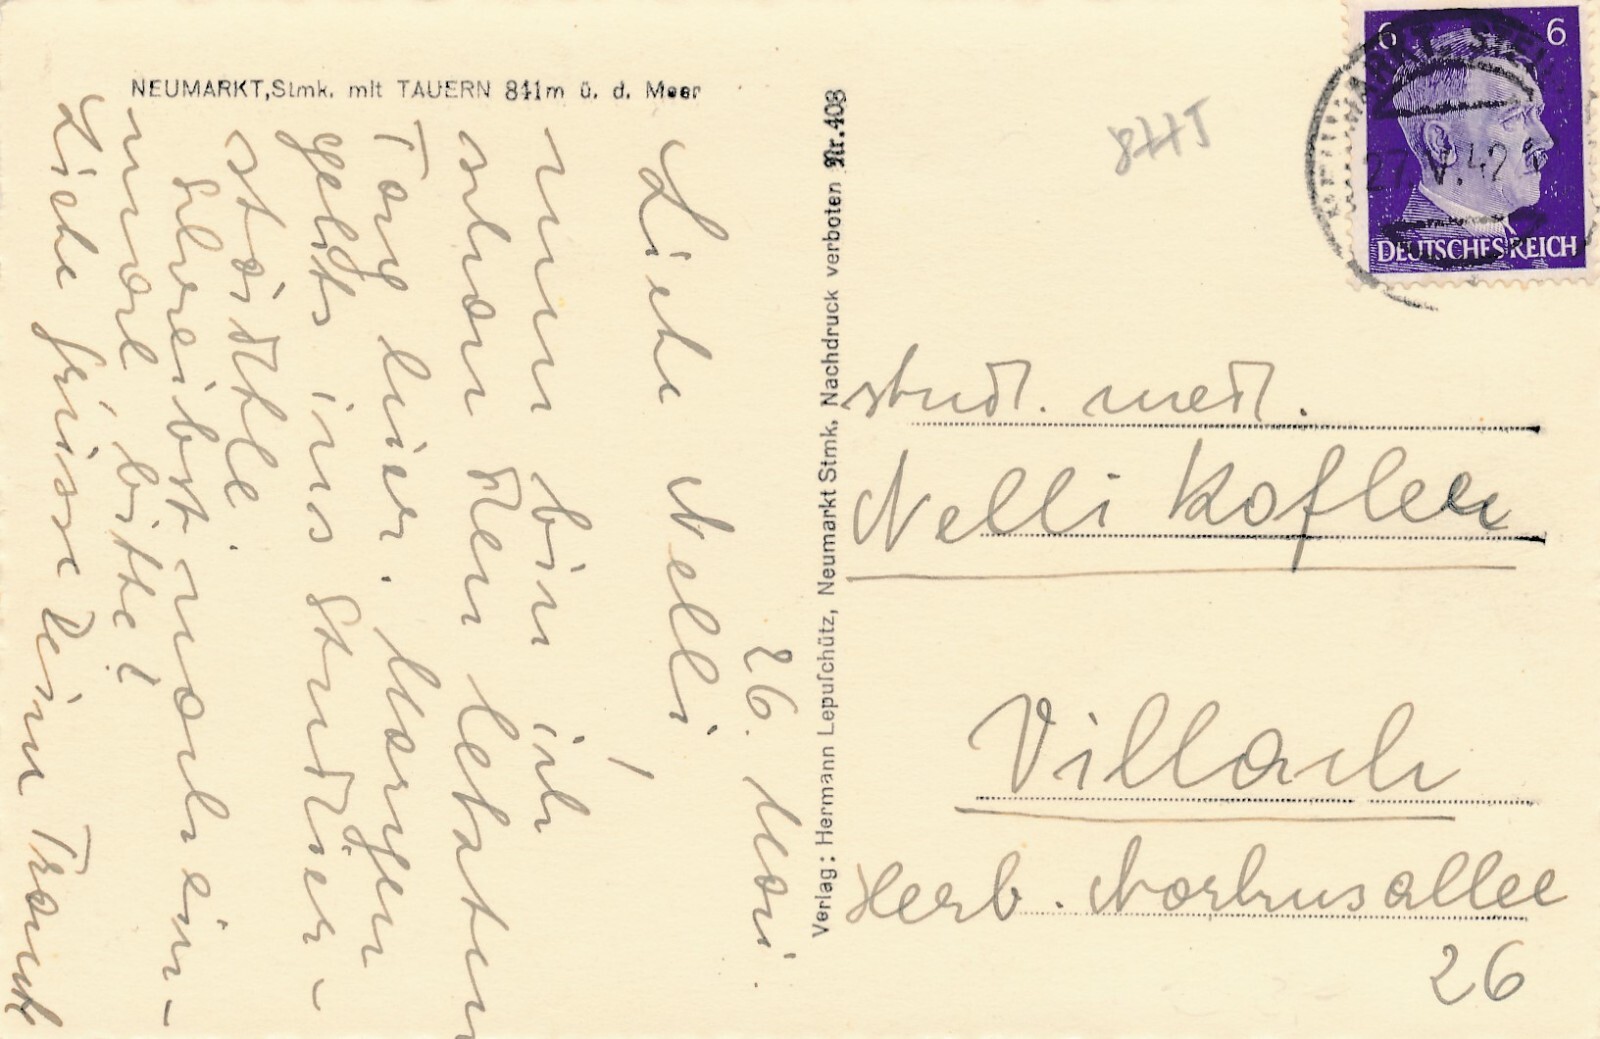 NEUMARKT, Stmk. mit TAUERN 841m ü. d. Meer
26. Mai.
Liebe Nelli,
nun bin ich
schon den letzten
Tag hier. Morgen
gehts ins Studier-
städtle.
Schreibst nach ein-
mal, bitte!
Liebe Grüsse Deine Traudl
Verlag: Hermann Lepuschütz, Neumarkt Stmk. Nachdruck verboten Nr. 403
6 6
27.V.42
DEUTSCHES REICH
stud. med.
Nelli Kofler
Villach
Herb. Norkusallee
26